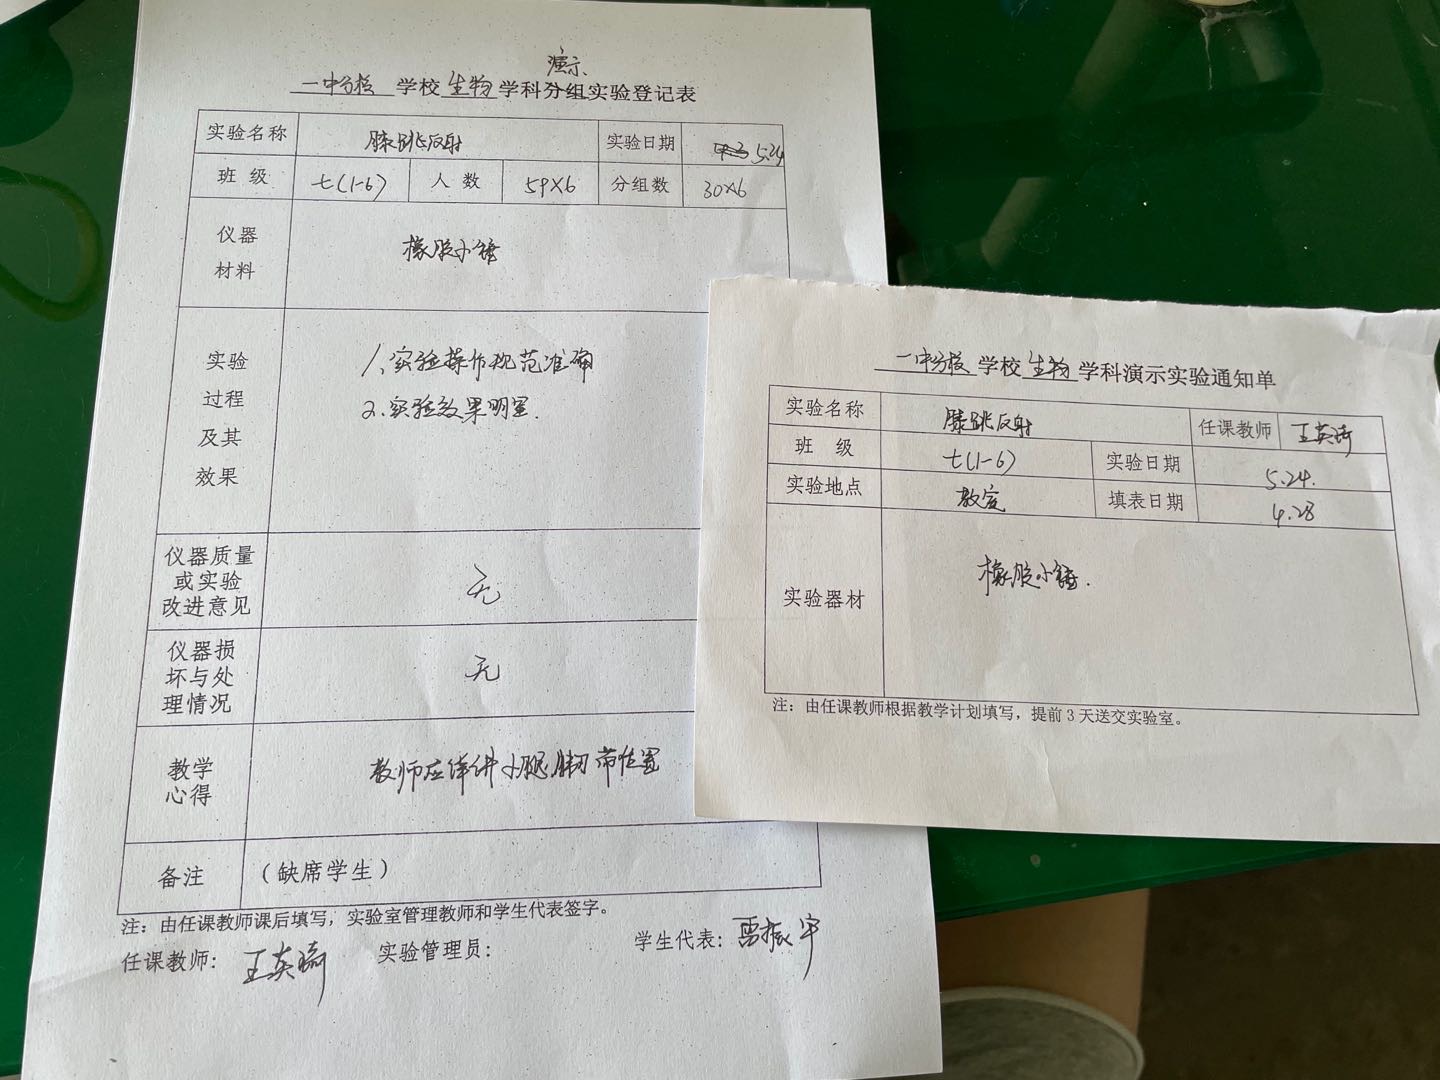 演示
一中分校 学校 生物 学科分组实验登记表
实验名称 膝跳反射 实验日期 5.24
班 级 七(1-6) 人 数 59×6 分组数 30×6
仪器
材料
橡胶小锤
实验
过程
及其
效果
1、实验操作规范准确
2、实验效果明显.
仪器质量
或实验
改进意见
无
仪器损
坏与处
理情况
无
教学
心得
教师应详讲小腿肌韧带位置
备注 (缺席学生)
注：由任课教师课后填写，实验室管理教师和学生代表签字。
任课教师： 王英琦 实验管理员： 学生代表：雷振宇
一中分校 学校 生物 学科演示实验通知单
实验名称 膝跳反射 任课教师 王英琦
班 级 七(1-6) 实验日期 5.24.
实验地点 教室 填表日期 4.28
实验器材 橡胶小锤.
注：由任课教师根据教学计划填写，提前3天送交实验室。